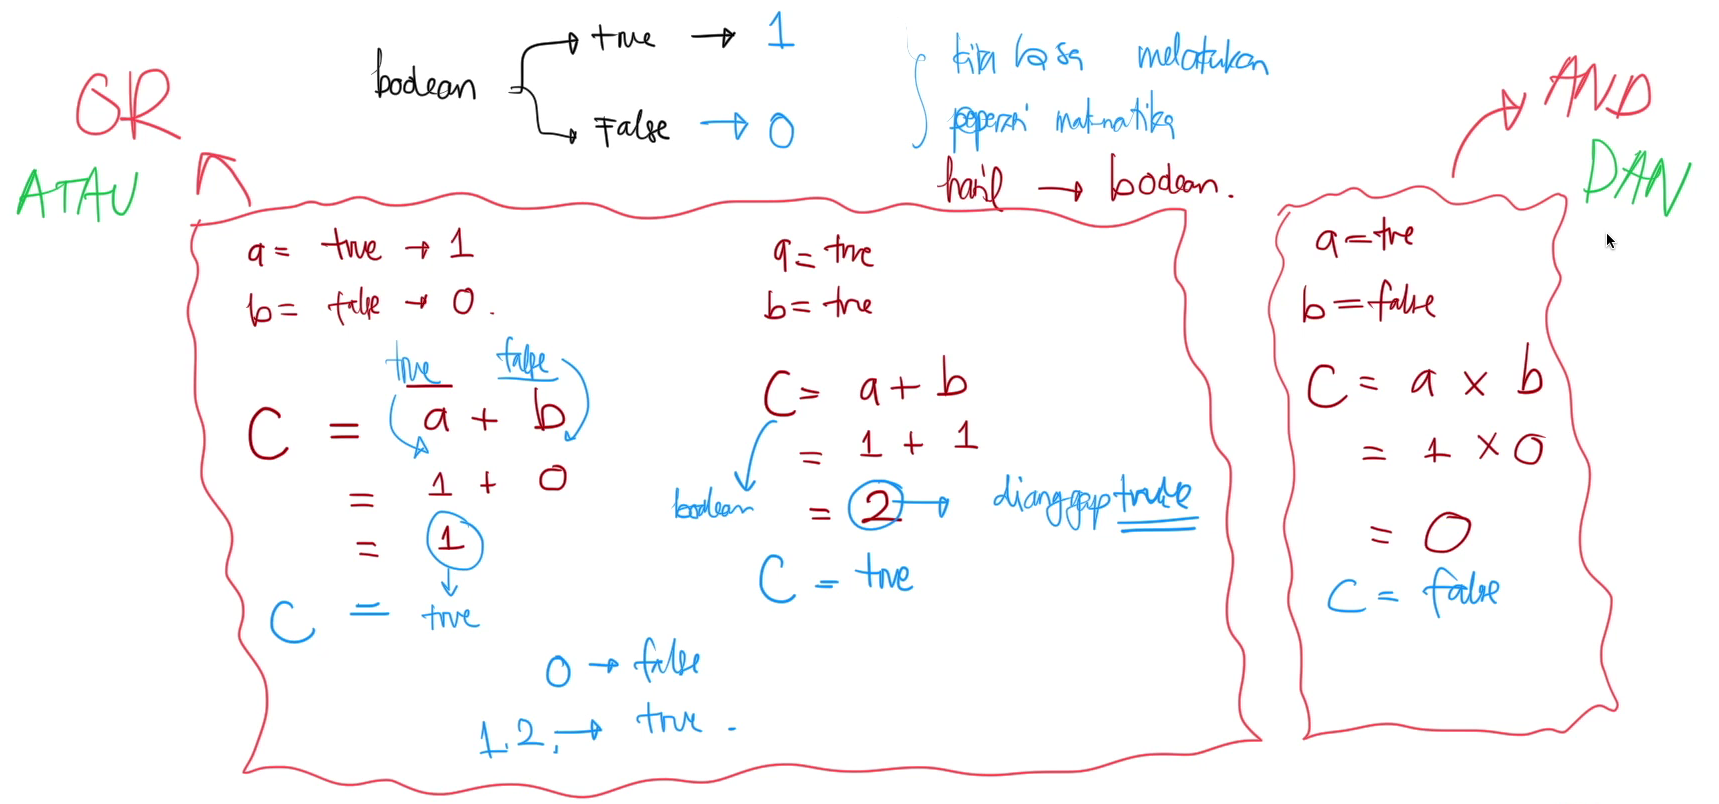 boolean
true → 1
False → 0
kita bisa melakukan
operasi matematika
hasil → boolean.
OR
ATAU
a = true → 1
b = false → 0.
true false
C = a + b
= 1 + 0
= 1
C = true
a = true
b = true
C = a + b
= 1 + 1
boolean
= 2 → dianggap true
C = true
0 → false
1, 2, → true.
AND
DAN
a = tre
b = false
C = a x b
= 1 x 0
= 0
C = false